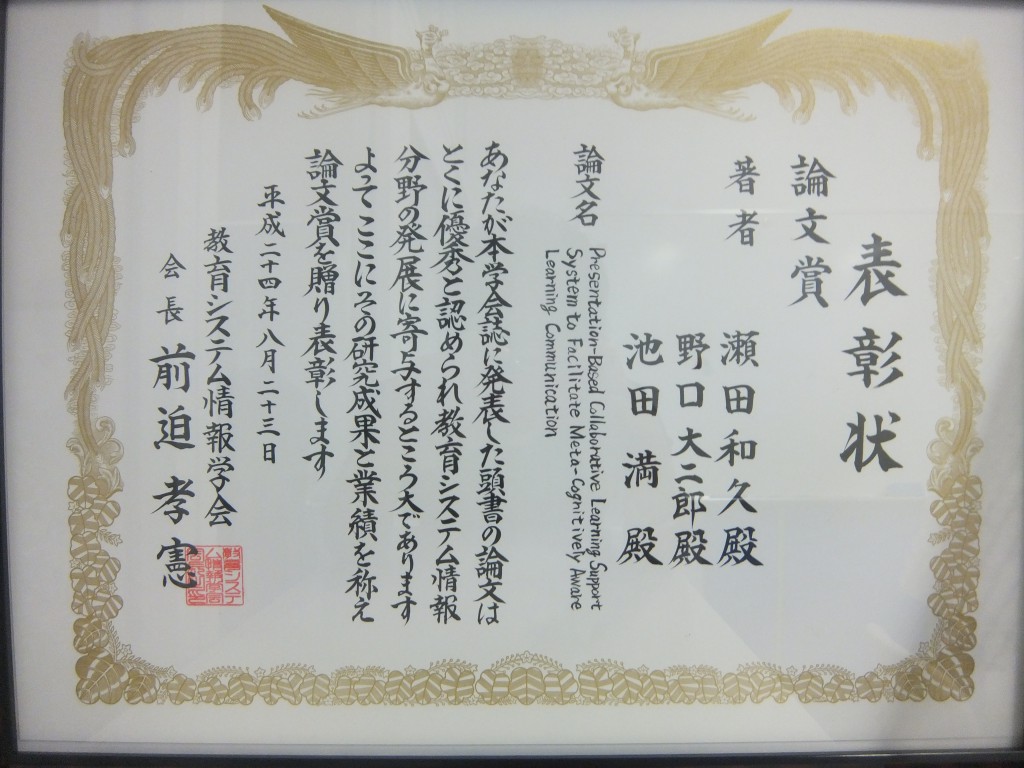 表彰状
論文賞
著者 瀬田和久殿
野口大二郎殿
池田満殿
論文名 Presentation-Based Collaborative Learning Support
System to Facilitate Meta-Cognitively Aware
Learning Communication
あなたが本学会誌に発表した頭書の論文は
とくに優秀と認められ教育システム情報
分野の発展に寄与するところ大であります
よってここにその研究成果と業績を称え
論文賞を贈り表彰します
平成二十四年八月二十三日
教育システム情報学会
会長 前迫孝憲